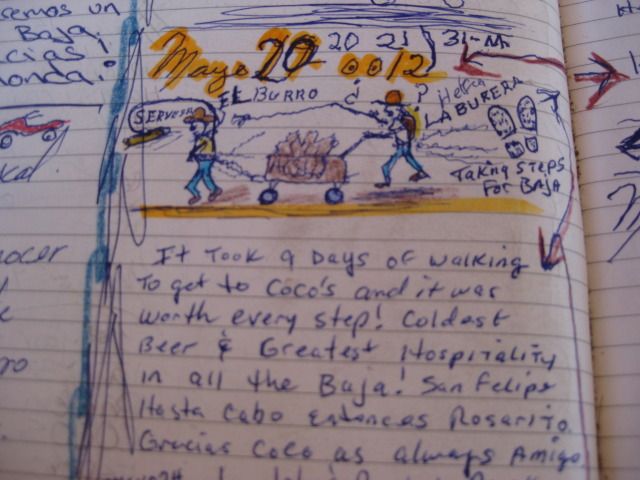 cemos un
Baja,
cias!
onda!
20 21 31-M
Mayo 20 0012
SERVESA
EL BURRO
¿ ?
Helper
LA BURERA
Taking Steps
For Baja
kal
ocer
It Took 9 Days of walking
To get to Coco's and it was
worth every step! Coldest
Beer & Greatest Hospitality
in all the Baja! San Felipe
Hasta Cabo entonces Rosarito
Gracias Coco as always Amigo